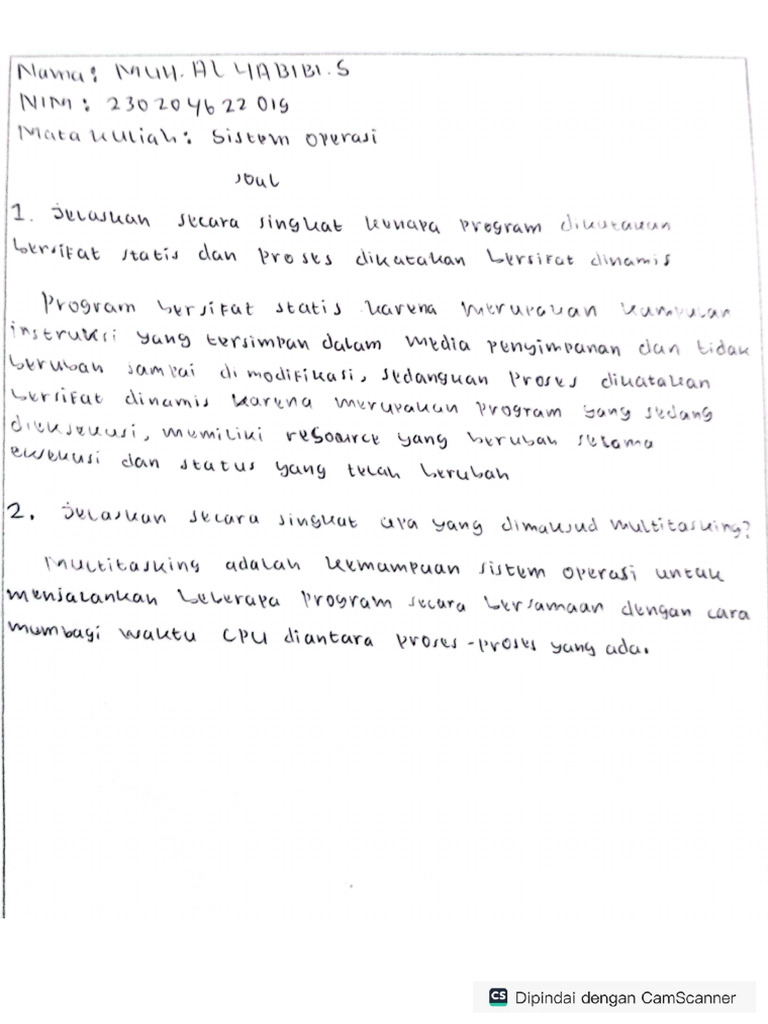 Nama : MUH. AL YABIBI. S
NIM : 230204622019
Mata kuliah : Sistem operasi
soal
1. Jelaskan secara singkat kenapa program dikatakan
bersifat statis dan proses dikatakan bersifat dinamis
Program bersifat statis karena merupakan kumpulan
instruksi yang tersimpan dalam media penyimpanan dan tidak
berubah sampai di modifikasi, sedangkan proses dikatakan
bersifat dinamis karena merupakan program yang sedang
dieksekusi, memiliki resource yang berubah selama
eksekusi dan status yang telah berubah
2. Jelaskan secara singkat apa yang dimaksud multitasking?
Multitasking adalah kemampuan sistem operasi untuk
menjalankan beberapa program secara bersamaan dengan cara
membagi waktu CPU diantara proses-proses yang ada.
CS Dipindai dengan CamScanner